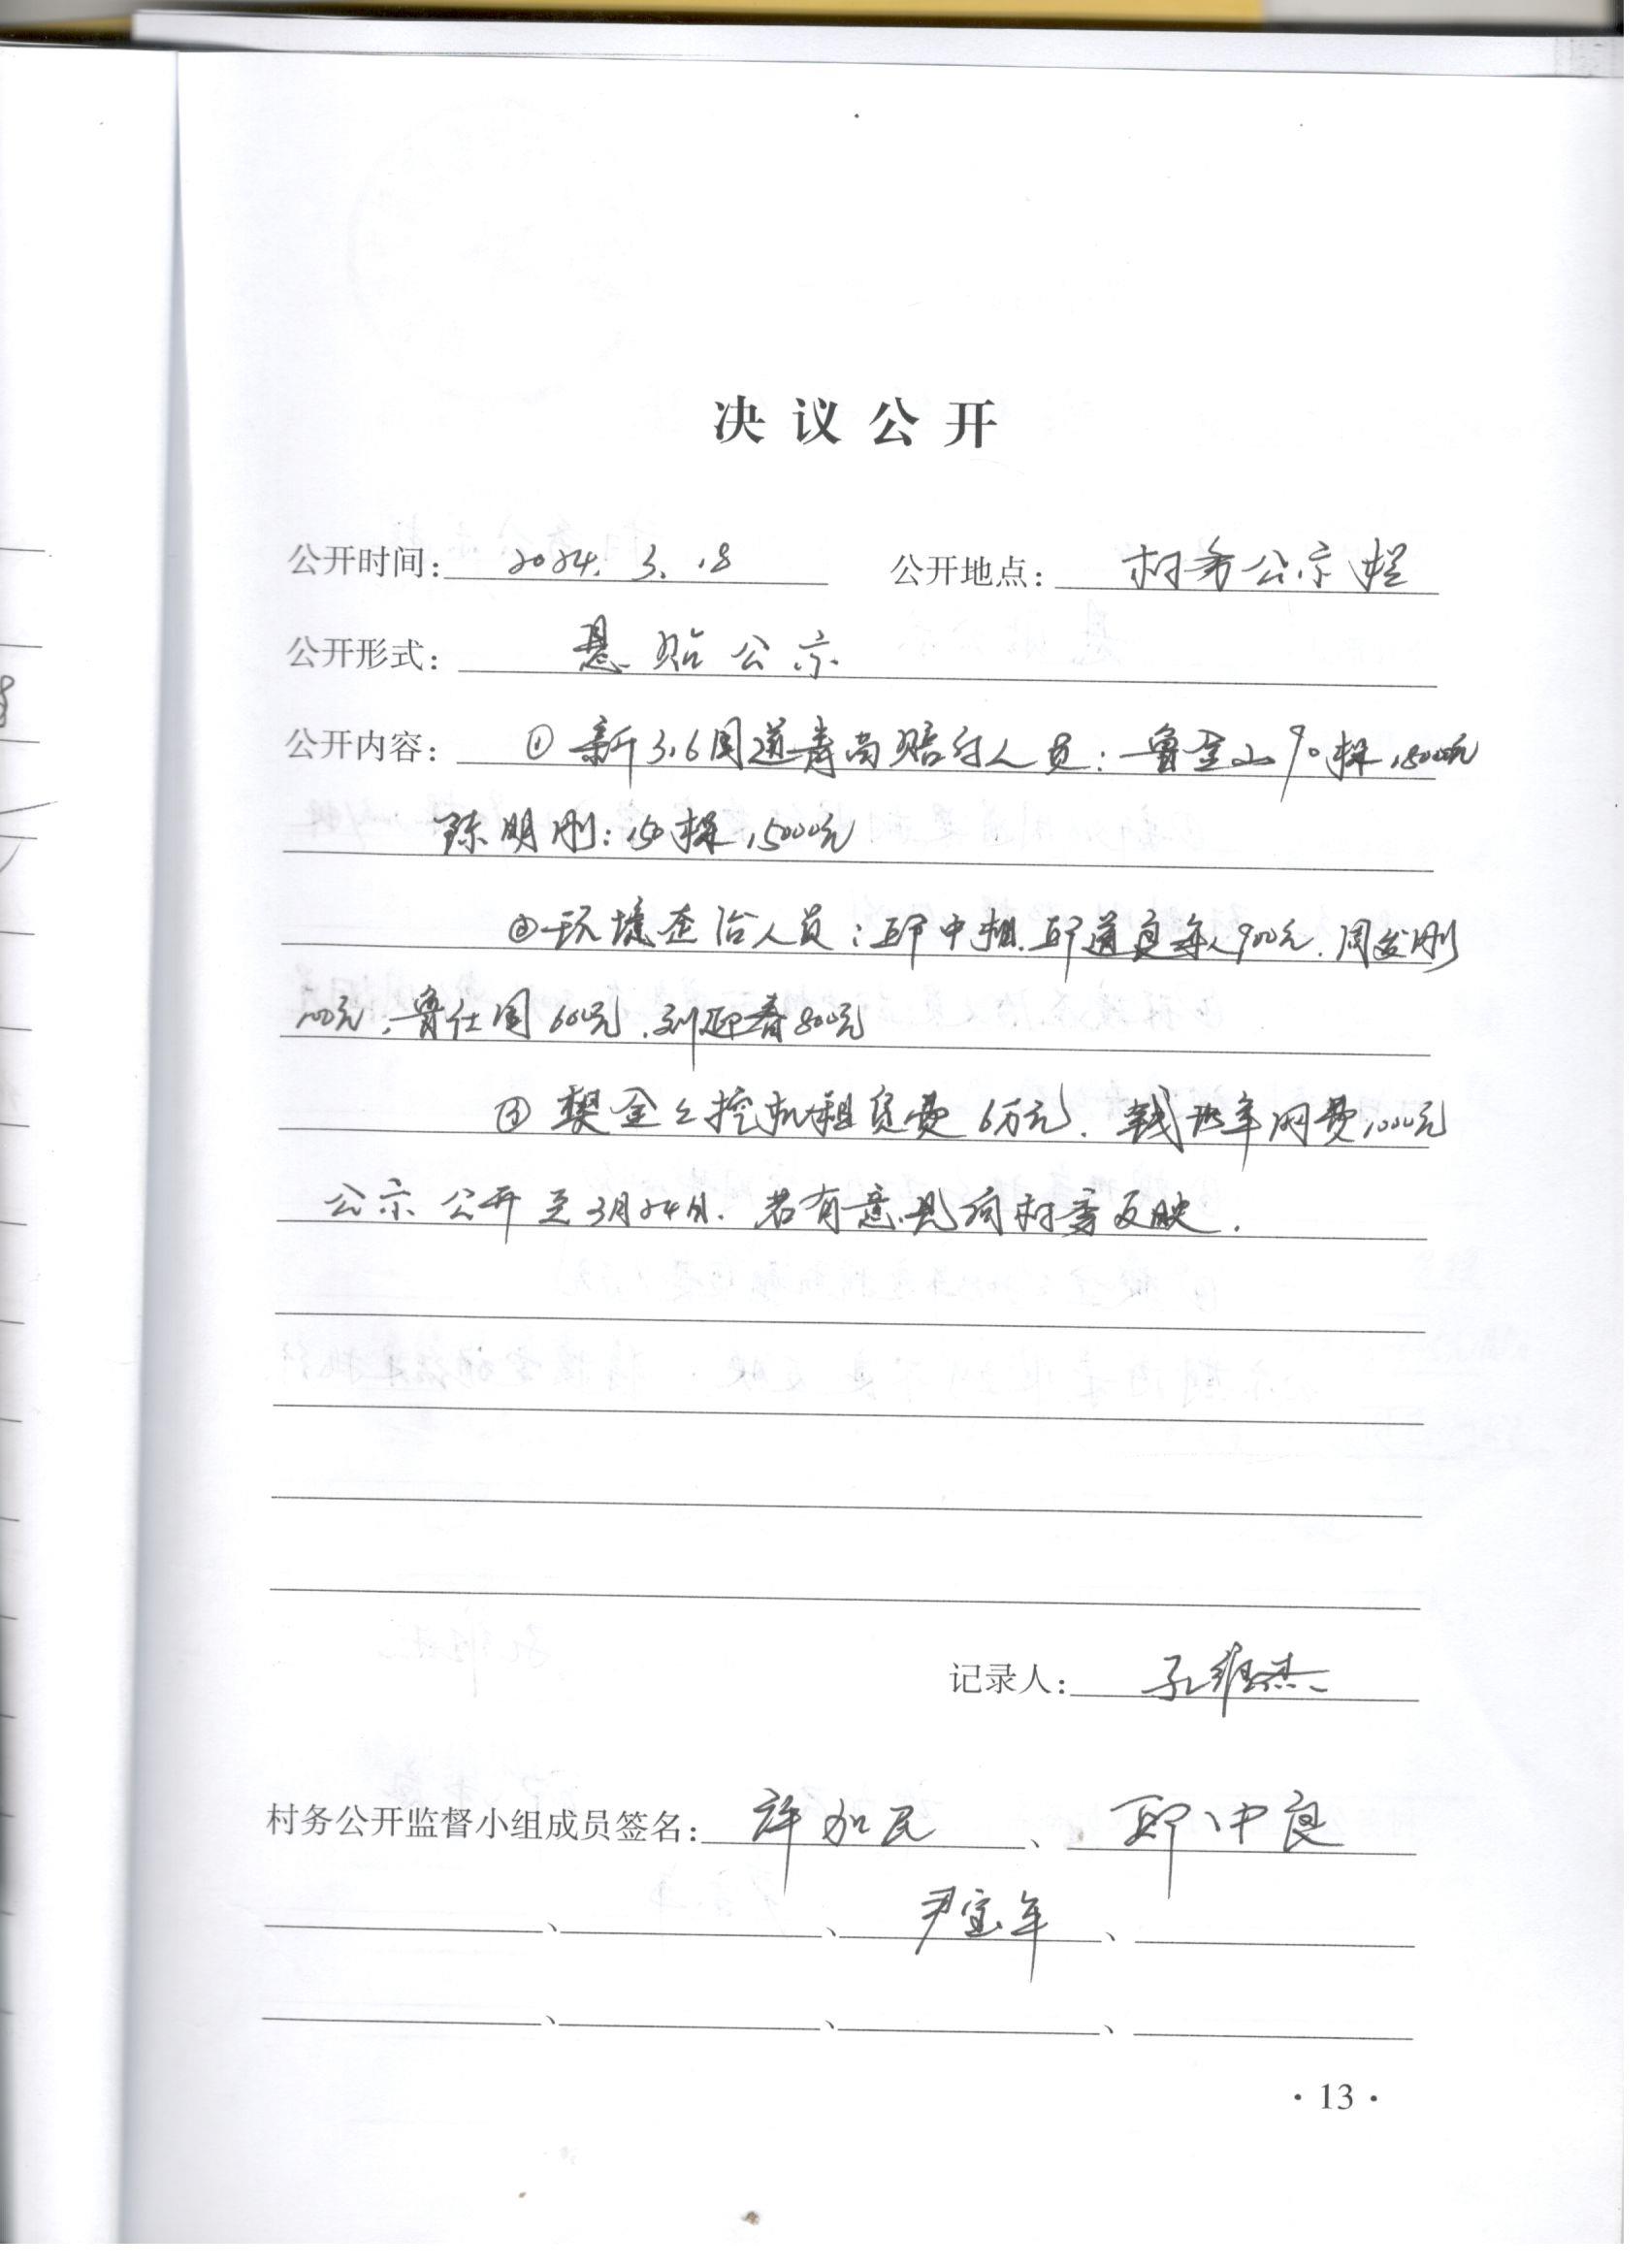 决议公开
公开时间: 2024.3.18 公开地点: 村务公示栏
公开形式: 悬贴公示
公开内容: ① 新316国道青苗赔付人员:鲁金山90株,18000元
陈明刚:150株15000元
②环境整治人员:邱中相、邱道良每人900元、周发刚
100元、鲁仕国600元、刘迎春800元
③ 樊金之挖机租赁费6万元、钱世年网费1000元
公示公开至3月24日. 若有意见向村委反映.
记录人: 孔维杰
村务公开监督小组成员签名: 许加民、邱中良
、、尹宝年、
、、、
·13·